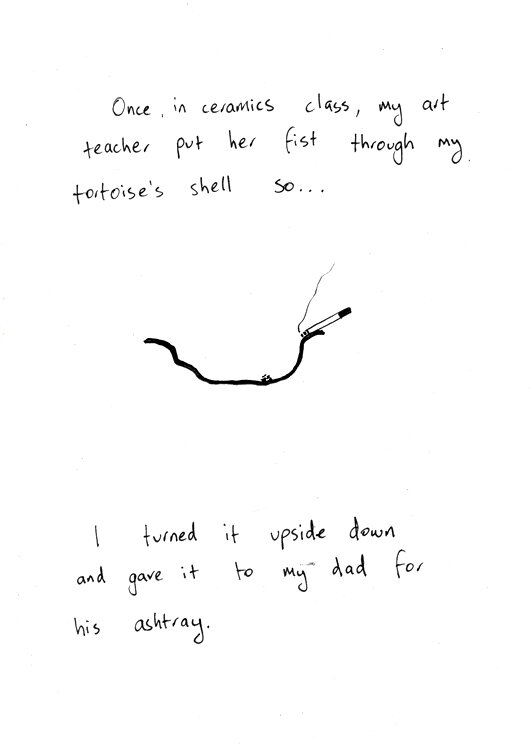 Once, in ceramics class, my art
teacher put her fist through my
tortoise's shell so...
I turned it upside down
and gave it to my dad for
his ashtray.